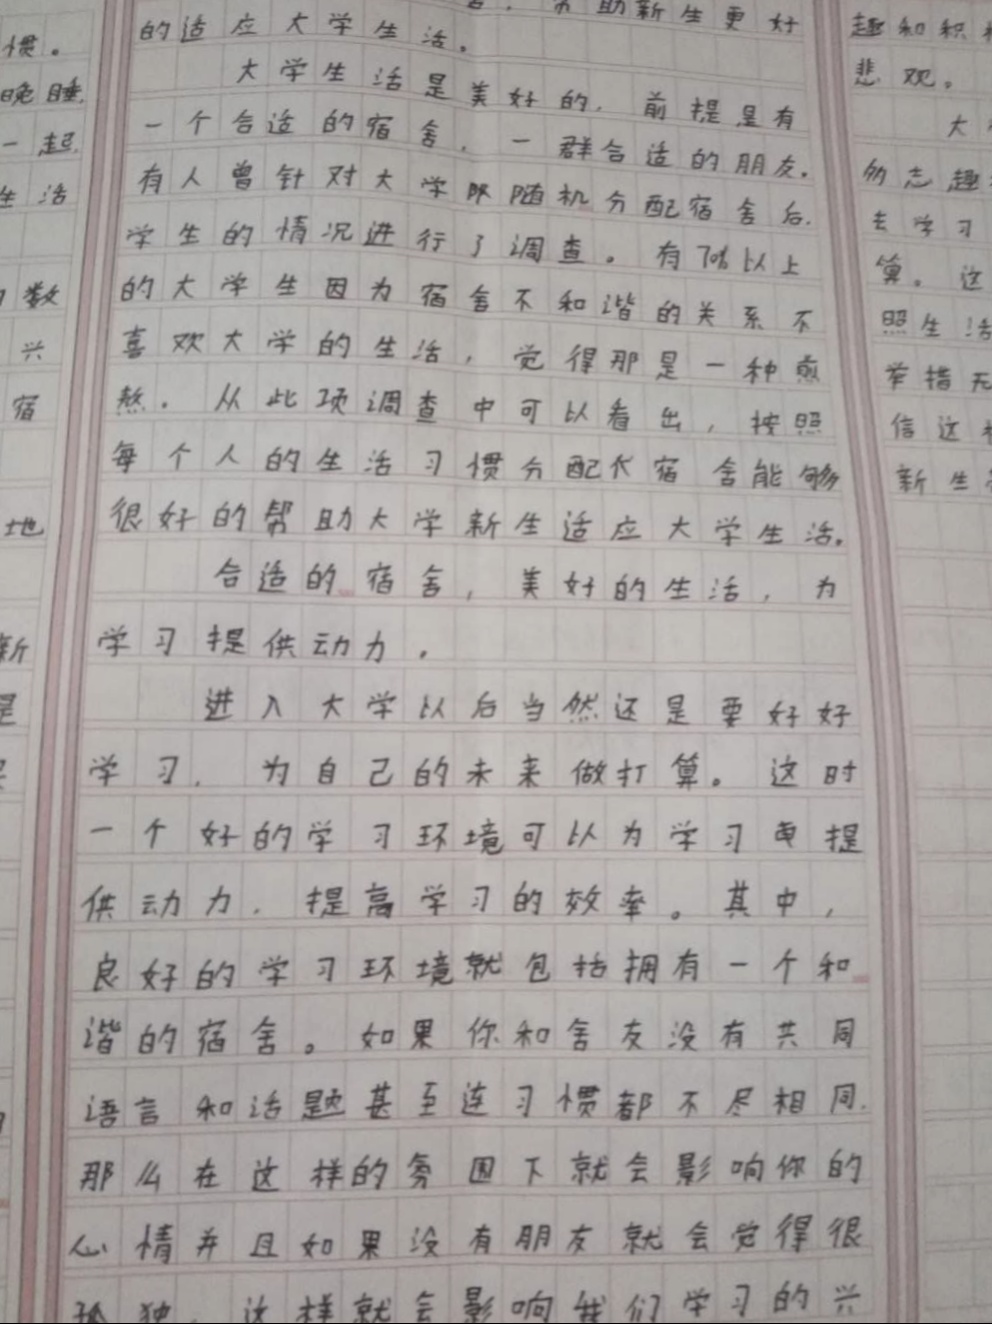 惯。
晚睡
一起
生活
数
兴
宿
地
新
是
助新生更好
的适应大学生活。
大学生活是美好的，前提是有
一个合适的宿舍，一群合适的朋友。
有人曾针对大学随机分配宿舍后，
学生的情况进行了调查。有70%以上
的大学生因为宿舍不和谐的关系不
喜欢大学的生活，觉得那是一种煎
熬。从此项调查中可以看出，按照
每个人的生活习惯分配宿舍能够
很好的帮助大学新生适应大学生活。
合适的宿舍，美好的生活，为
学习提供动力。
进入大学以后当然还是要好好
学习，为自己的未来做打算。这时
一个好的学习环境可以为学习提
供动力，提高学习的效率。其中，
良好的学习环境就包括拥有一个和
谐的宿舍。如果你和舍友没有共同
语言和话题甚至连习惯都不尽相同，
那么在这样的氛围下就会影响你的
心情并且如果没有朋友就会觉得很
孤独，这样就会影响我们学习的兴
趣和积
悲观。
大
的志趣
去学习
算。这
照生活
举措无
信这
新生